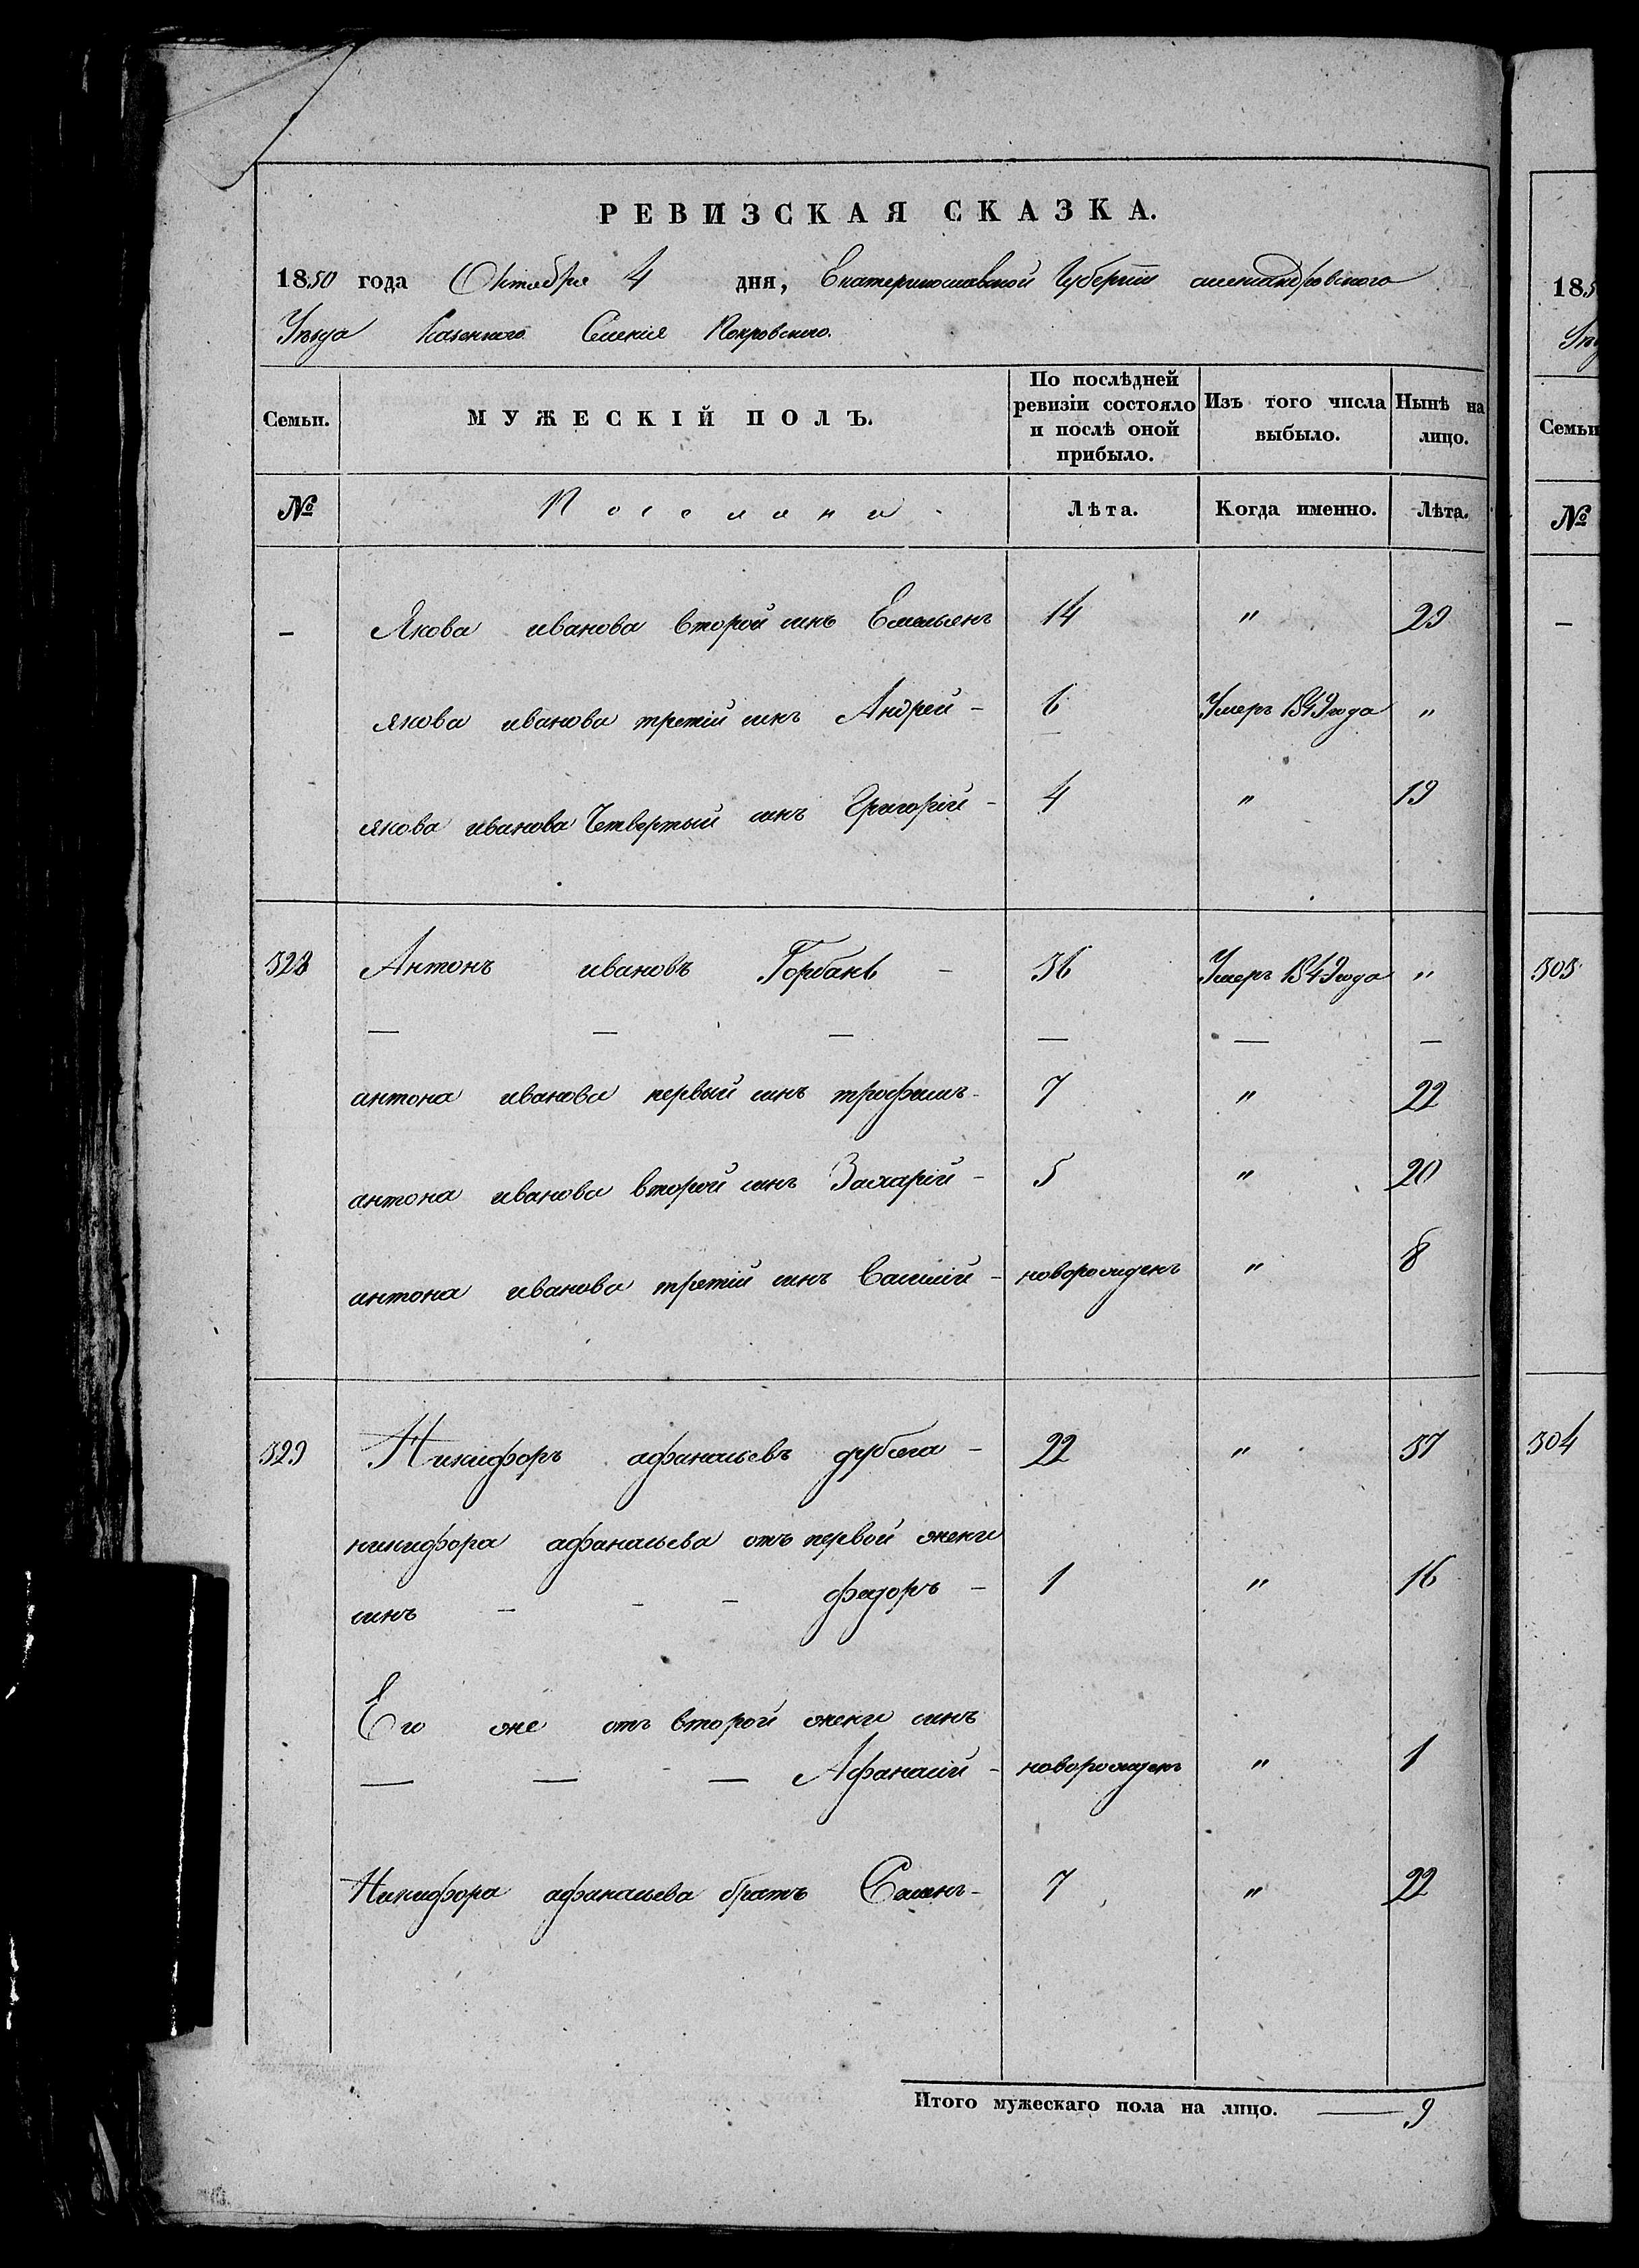 РЕВИЗСКАЯ СКАЗКА.
1850 года Октября 4 дня, Екатеринославской Губерніи александровского
Уѣзда Казенного Селенія Покровского.
Семьи. МУЖЕСКІЙ ПОЛЪ. По послѣдней ревизіи состояло и послѣ оной прибыло. Изъ того числа выбыло. Нынѣ на лицо.
№ Поселяни Лѣта. Когда именно. Лѣта.
— Якова иванова второй синъ Емельянъ 14 " 29
якова иванова третій синъ Андрей — 6 Умеръ 1849 года "
якова иванова Четвертый синъ Григорій — 4 " 19
328 Антонъ ивановъ Горбань — 36 Умеръ 1849 года "
— — — — — —
антона иванова первый синъ трофимъ — 7 " 22
антона иванова второй синъ Захарій — 5 " 20
антона иванова третій синъ Василій — новорожденъ " 8
329 Никифоръ афанасьевъ — 22 " 37
никифора афанасьева отъ первой жени
синъ — — — федоръ — 1 " 16
Его же отъ второй жени синъ
— — — Афанасій — новорожденъ " 1
Никифора афанасьева братъ Семенъ — 7 " 22
Итого мужескаго пола на лицо. — 9
185
Семьи
№
—
303
304